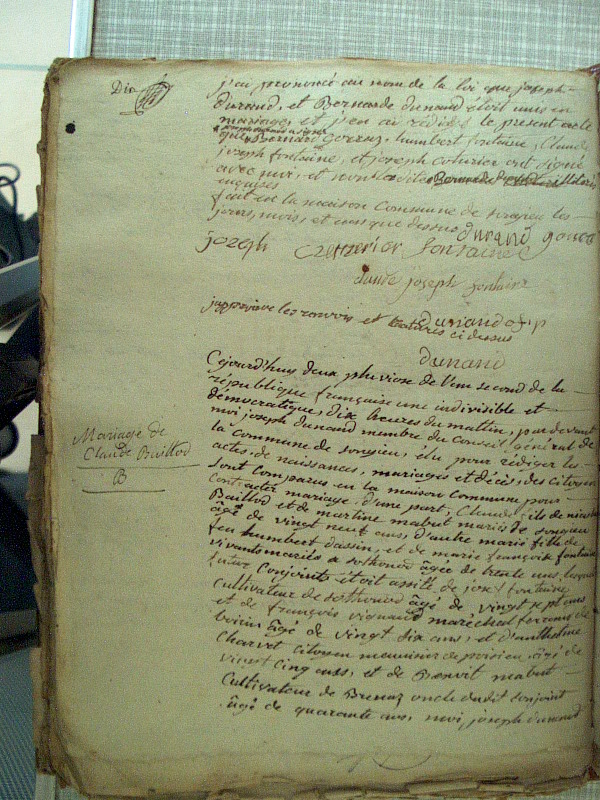 Dix
j'ai prononcé au nom de la loi que joseph
dunand, et Bernarde dunand étoit unis en
mariage, et j'en ai rédigé le present acte
que Bernard gorraz, humbert fontaine, Claude
joseph fontaine, et joseph coturier ont signé
avec moi, et non
requises
fait en la maison Commune de songieu les
jours, mois, et ans que dessus dunand
joseph fontaine
claude joseph fontaine
japprouve les renvois et ratures ci dessus
dunand o.p
dunand
Mariage de
Claude Baillod
B
Cejourd'huy deux pluviose de l'an second de la
république française une indivisible et
démocratique, dix heures du mattin, par devant
moi joseph dunand membre du Conseil général de
la Commune de songieu, élu pour rédiger les
actes de naissances, mariages et décès, des citoyens
sont comparus en la maison Commune pour
contracter mariage d'une part, Claude fils de
Baillod et de martine mabut mariés de songieu
âgé de vingt neuf ans, d'autre marie fille de
feu humbert dassin, et de marie françoise fontaine
vivants mariés a sothonod âgée de trente ans, lesquels
futur Conjoints étoit assité de josep fontaine
cultivateur de sothonod âgé de vingt sept ans
et de françois vignand maréchal ferrant de
âgé de vingt dix ans, et d'anthelme
Charvet citoyen meunier de âgé de
vingt cinq ans, et de Benoit mabut
Cultivateur de Brenaz oncle dudit conjoint
âgé de quarante ans, moi, joseph dunand